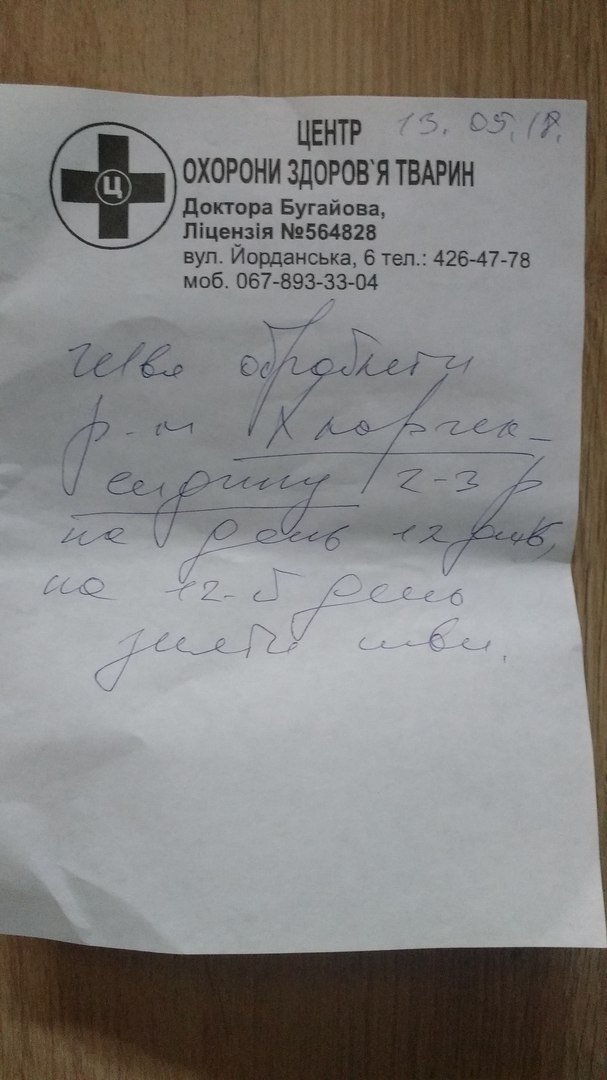 13.05.18.
ЦЕНТР
ОХОРОНИ ЗДОРОВ`Я ТВАРИН
Ц
Доктора Бугайова,
Ліцензія №564828
вул. Йорданська, 6 тел.: 426-47-78
моб. 067-893-33-04
Шви обробляти
р-м Хлоргек-
сидину 2-3 р
на день 12 днів,
на 12-й день
зняти шви.